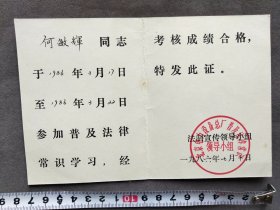 何敏辉 同志
于1986年3月17日
至1986年3月22日
参加普及法律
常识学习，经
考核成绩合格，
特发此证。
法制宣传领导小组
领导小组
一九八六年 月 日